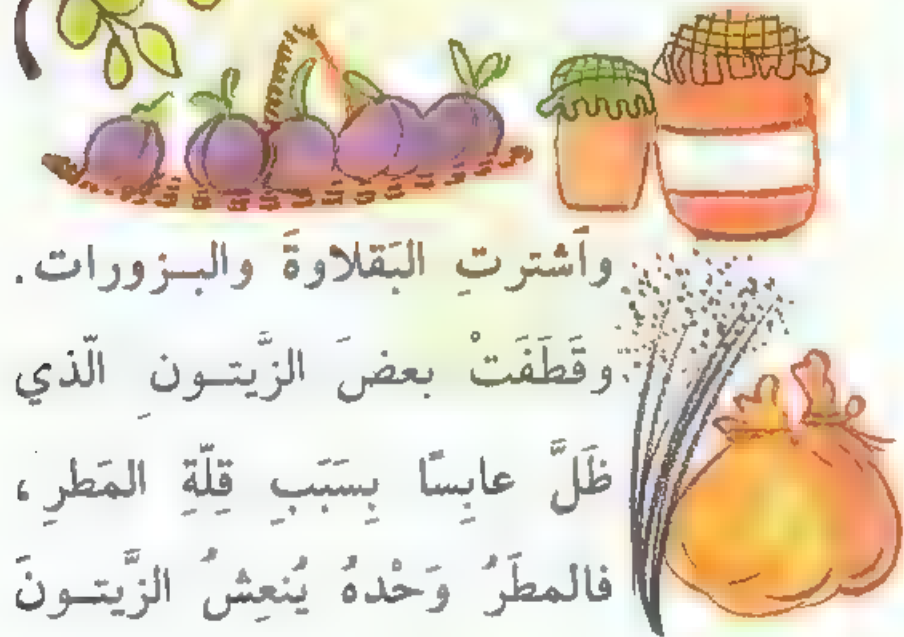 وٱشترتِ البَقلاوةَ والبـزورات.
وقَطَفَتْ بعضَ الزَّيتـونِ الّذي
ظَلَّ عابِسًا بِسَبَبِ قِلّةِ المَطرِ،
فالمطَرُ وَحْدهُ يُنعِشُ الزَّيتـونَ